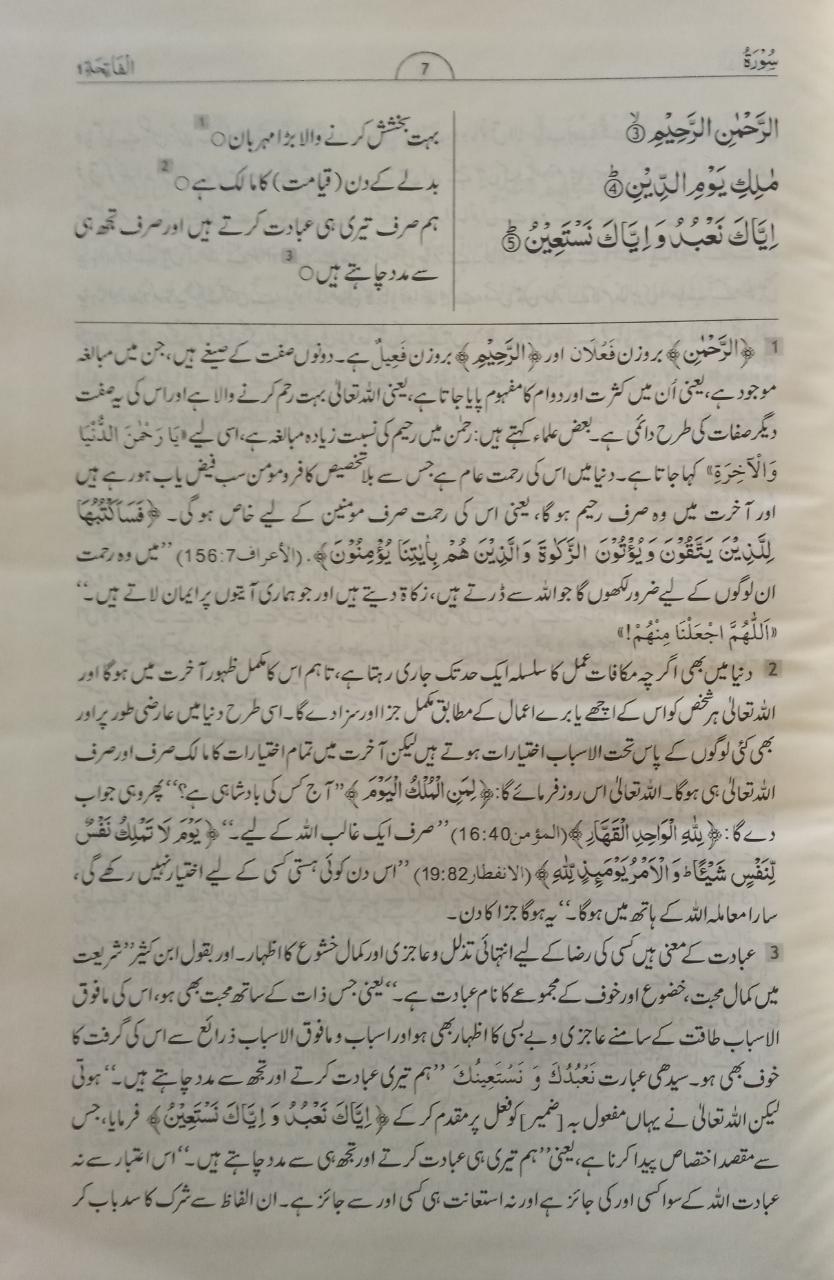 سُوْرَةُ 7 اَلْفَاتِحَةِ ١
الرَّحْمٰنِ الرَّحِيْمِ ۙ③
مٰلِكِ يَوْمِ الدِّيْنِ ؕ④
اِيَّاكَ نَعْبُدُ وَ اِيَّاكَ نَسْتَعِيْنُ ؕ⑤
بہت بخشش کرنے والا بڑا مہربان ○ 1
بدلے کے دن (قیامت) کا مالک ہے ○ 2
ہم صرف تیری ہی عبادت کرتے ہیں اور صرف تجھ ہی
سے مدد چاہتے ہیں ○ 3
1 ﴿الرَّحْمٰنِ﴾ بروزن فَعْلَان اور ﴿الرَّحِيْمِ﴾ بروزن فَعِيلٌ ہے۔ دونوں صفت کے صیغے ہیں، جن میں مبالغہ
موجود ہے، یعنی اُن میں کثرت اور دوام کا مفہوم پایا جاتا ہے، یعنی اللہ تعالیٰ بہت رحم کرنے والا ہے اور اس کی یہ صفت
دیگر صفات کی طرح دائمی ہے۔ بعض علماء کہتے ہیں: رحمٰن میں رحیم کی نسبت زیادہ مبالغہ ہے، اسی لیے «يَا رَحْمٰنَ الدُّنْيَا
وَالْآخِرَةِ» کہا جاتا ہے۔ دنیا میں اس کی رحمت عام ہے جس سے بلا تخصیص کافر و مومن سب فیض یاب ہو رہے ہیں
اور آخرت میں وہ صرف رحیم ہو گا، یعنی اس کی رحمت صرف مومنین کے لیے خاص ہو گی۔ ﴿فَسَاَكْتُبُهَا
لِلَّذِيْنَ يَتَّقُوْنَ وَيُؤْتُوْنَ الزَّكٰوةَ وَالَّذِيْنَ هُمْ بِاٰيٰتِنَا يُؤْمِنُوْنَ﴾۔ (الأعراف7:156) ”میں وہ رحمت
ان لوگوں کے لیے ضرور لکھوں گا جو اللہ سے ڈرتے ہیں، زکاۃ دیتے ہیں اور جو ہماری آیتوں پر ایمان لاتے ہیں۔“
«اَللّٰهُمَّ اجْعَلْنَا مِنْهُمْ!»
2 دنیا میں بھی اگرچہ مکافات عمل کا سلسلہ ایک حد تک جاری رہتا ہے، تاہم اس کا مکمل ظہور آخرت میں ہوگا اور
اللہ تعالیٰ ہر شخص کو اس کے اچھے یا برے اعمال کے مطابق مکمل جزا اور سزا دے گا۔ اسی طرح دنیا میں عارضی طور پر اور
بھی کئی لوگوں کے پاس تحت الاسباب اختیارات ہوتے ہیں لیکن آخرت میں تمام اختیارات کا مالک صرف اور صرف
اللہ تعالیٰ ہی ہوگا۔ اللہ تعالیٰ اس روز فرمائے گا: ﴿لِمَنِ الْمُلْكُ الْيَوْمَ﴾ ”آج کس کی بادشاہی ہے؟“ پھر وہی جواب
دے گا: ﴿لِلّٰهِ الْوَاحِدِ الْقَهَّارِ﴾ (المؤمن40:16) ”صرف ایک غالب اللہ کے لیے۔“ ﴿يَوْمَ لَا تَمْلِكُ نَفْسٌ
لِّنَفْسٍ شَيْـًٔا ؕ وَالْاَمْرُ يَوْمَىِٕذٍ لِّلّٰهِ﴾ (الانفطار82:19) ”اس دن کوئی ہستی کسی کے لیے اختیار نہیں رکھے گی،
سارا معاملہ اللہ کے ہاتھ میں ہوگا۔“ یہ ہوگا جزا کا دن۔
3 عبادت کے معنی ہیں کسی کی رضا کے لیے انتہائی تذلل و عاجزی اور کمال خشوع کا اظہار۔ اور بقول ابن کثیر ”شریعت
میں کمال محبت، خضوع اور خوف کے مجموعے کا نام عبادت ہے۔“ یعنی جس ذات کے ساتھ محبت بھی ہو، اس کی مافوق
الاسباب طاقت کے سامنے عاجزی و بے بسی کا اظہار بھی ہو اور اسباب و مافوق الاسباب ذرائع سے اس کی گرفت کا
خوف بھی ہو۔ سیدھی عبارت نَعْبُدُكَ وَ نَسْتَعِينُكَ ”ہم تیری عبادت کرتے اور تجھ سے مدد چاہتے ہیں۔“ ہوتی
لیکن اللہ تعالیٰ نے یہاں مفعول بہ [ضمیر] کو فعل پر مقدم کر کے ﴿اِيَّاكَ نَعْبُدُ وَ اِيَّاكَ نَسْتَعِيْنُ﴾ فرمایا، جس
سے مقصد اختصاص پیدا کرنا ہے، یعنی ”ہم تیری ہی عبادت کرتے اور تجھ ہی سے مدد چاہتے ہیں۔“ اس اعتبار سے نہ
عبادت اللہ کے سوا کسی اور کی جائز ہے اور نہ استعانت ہی کسی اور سے جائز ہے۔ ان الفاظ سے شرک کا سدباب کر